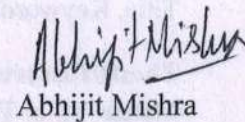 Abhijit Mishra
Abhijit Mishra